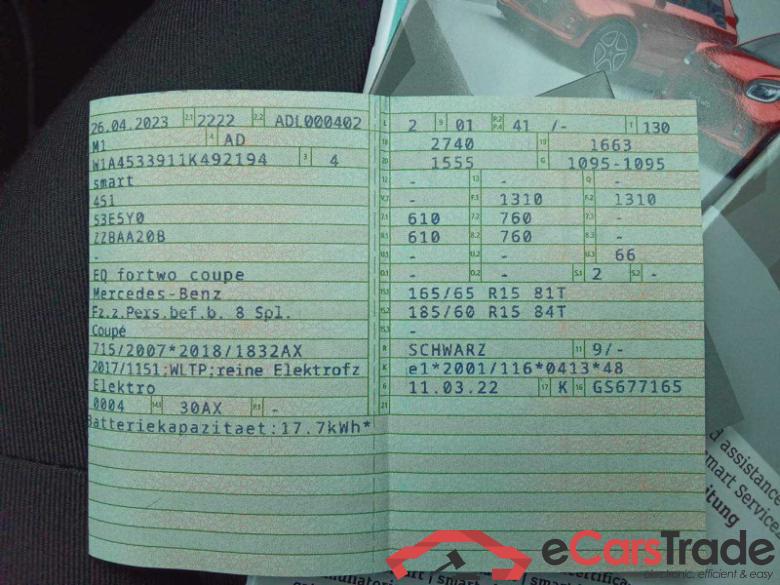 26.04.2023 2.1 2222 2.2 ADL000402
M1 4 AD
W1A4533911K492194 3 4
smart
451
53E5Y0
ZZBAA20B
-
EQ fortwo coupe
Mercedes-Benz
Fz.z.Pers.bef.b. 8 Spl.
Coupé
715/2007*2018/1832AX
2017/1151;WLTP;reine Elektrofz
Elektro
0004 14.1 30AX P.1 -
Batteriekapazitaet:17.7kWh*
L 2 9 01 P.2 P.4 41 /- T 130
18 2740 19 1663
20 1555 G 1095-1095
12 - 13 - Q -
V.7 - F.1 1310 F.2 1310
7.1 610 7.2 760 7.3 -
8.1 610 8.2 760 8.3 -
U.1 - U.2 - U.3 66
O.1 - O.2 - S.1 2 S.2 -
15.1 165/65 R15 81T
15.2 185/60 R15 84T
15.3 -
R SCHWARZ 11 9/-
K e1*2001/116*0413*48
6 11.03.22 17 K 16 GS677165
21
d assistance
smart Service
eCarsTrade
electronic, efficient & easy